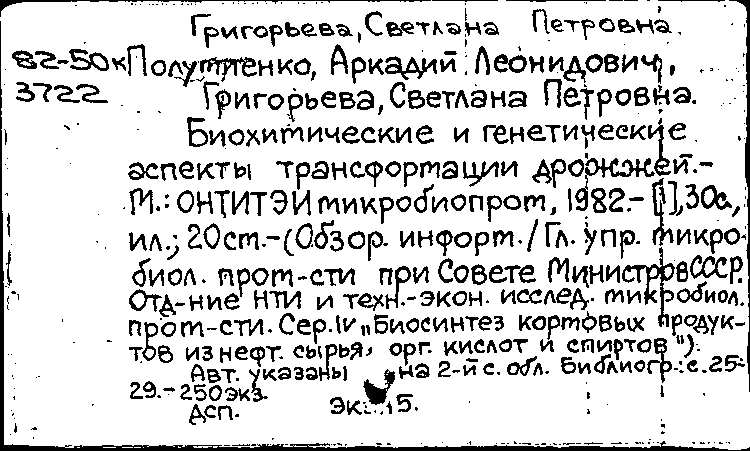 Григорьева, Светлана Петровна.
82-50к Полумиенко, Аркадий Леонидович,
3722 Григорьева, Светлана Петровна.
Биохимические и генетические
аспекты трансформации дрожжей.-
М.: ОНТИТЭИмикробиопром, 1982.- [1], 30с.,
ил.; 20см.-(Обзор. информ./Гл. упр. микро-
биол. пром-сти при Совете Министров СССР.
Отд-ние НТИ и техн.-экон. исслед. микробиол.
пром-сти. Сер. IV „Биосинтез кормовых продук-
тов из нефт. сырья, орг. кислот и спиртов").
Авт. указаны на 2-й с. обл. Библиогр.: с. 25-
29.-250экз.
ДСП. Экз. 15.